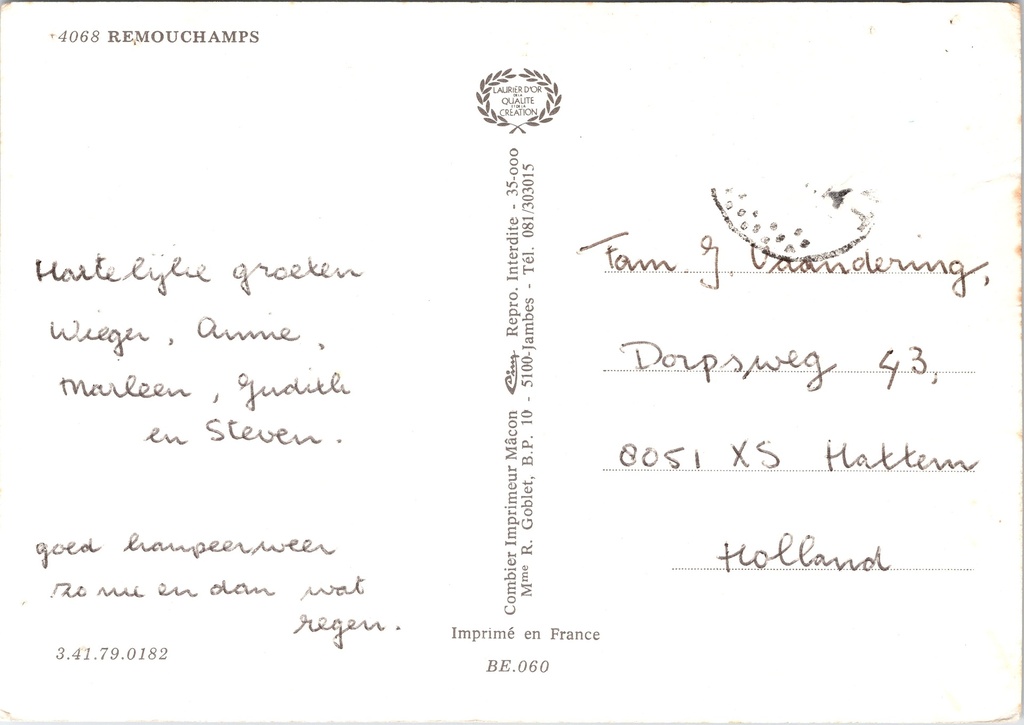 4068 REMOUCHAMPS
LAURIER D'OR
DE LA
QUALITE
ET DE LA
CREATION
Hartelijke groeten
Wieger, Annie,
Marleen, Judith
en Steven.
goed kampeerweer
zo nu en dan wat
regen.
3.41.79.0182
Combier Imprimeur Mâcon Cim Repro. Interdite - 35-000
Mme R. Goblet, B.P. 10 - 5100-Jambes - Tél. 081/303015
Imprimé en France
BE.060
Fam. J. Vaandering,
Dorpsweg 43,
8051 XS Hattem
Holland